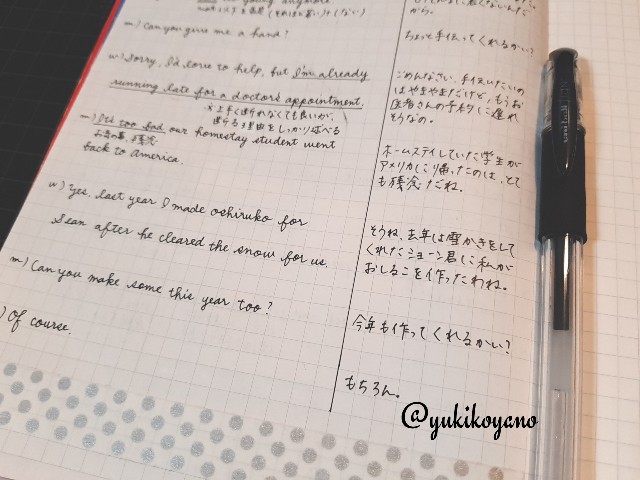 young anymore
m) Can you give me a hand?
w) Sorry, I'd love to help, but I'm already
running late for a doctor's appointment.
※上手く断れなくても良いが、
断る理由をしっかり述べる
m) It's too bad our homestay student went
お気の毒、残念
back to America.
w) Yes, last year I made oshiruko for
Sean after he cleared the snow for us.
m) Can you make some this year too?
) Of course.
から。
ちょっと手伝ってくれるかい?
ごめんなさい、手伝いたいの
はやまやまだけど、もうお
医者さんの予約に遅れ
そうなの。
ホームステイしていた学生が
アメリカに帰ったのは、とて
も残念だね。
そうね、去年は雪かきをして
くれたショーン君に私が
おしるこを作ったわね。
今年も作ってくれるかい?
もちろん。
@yukikoyano
uni-ball